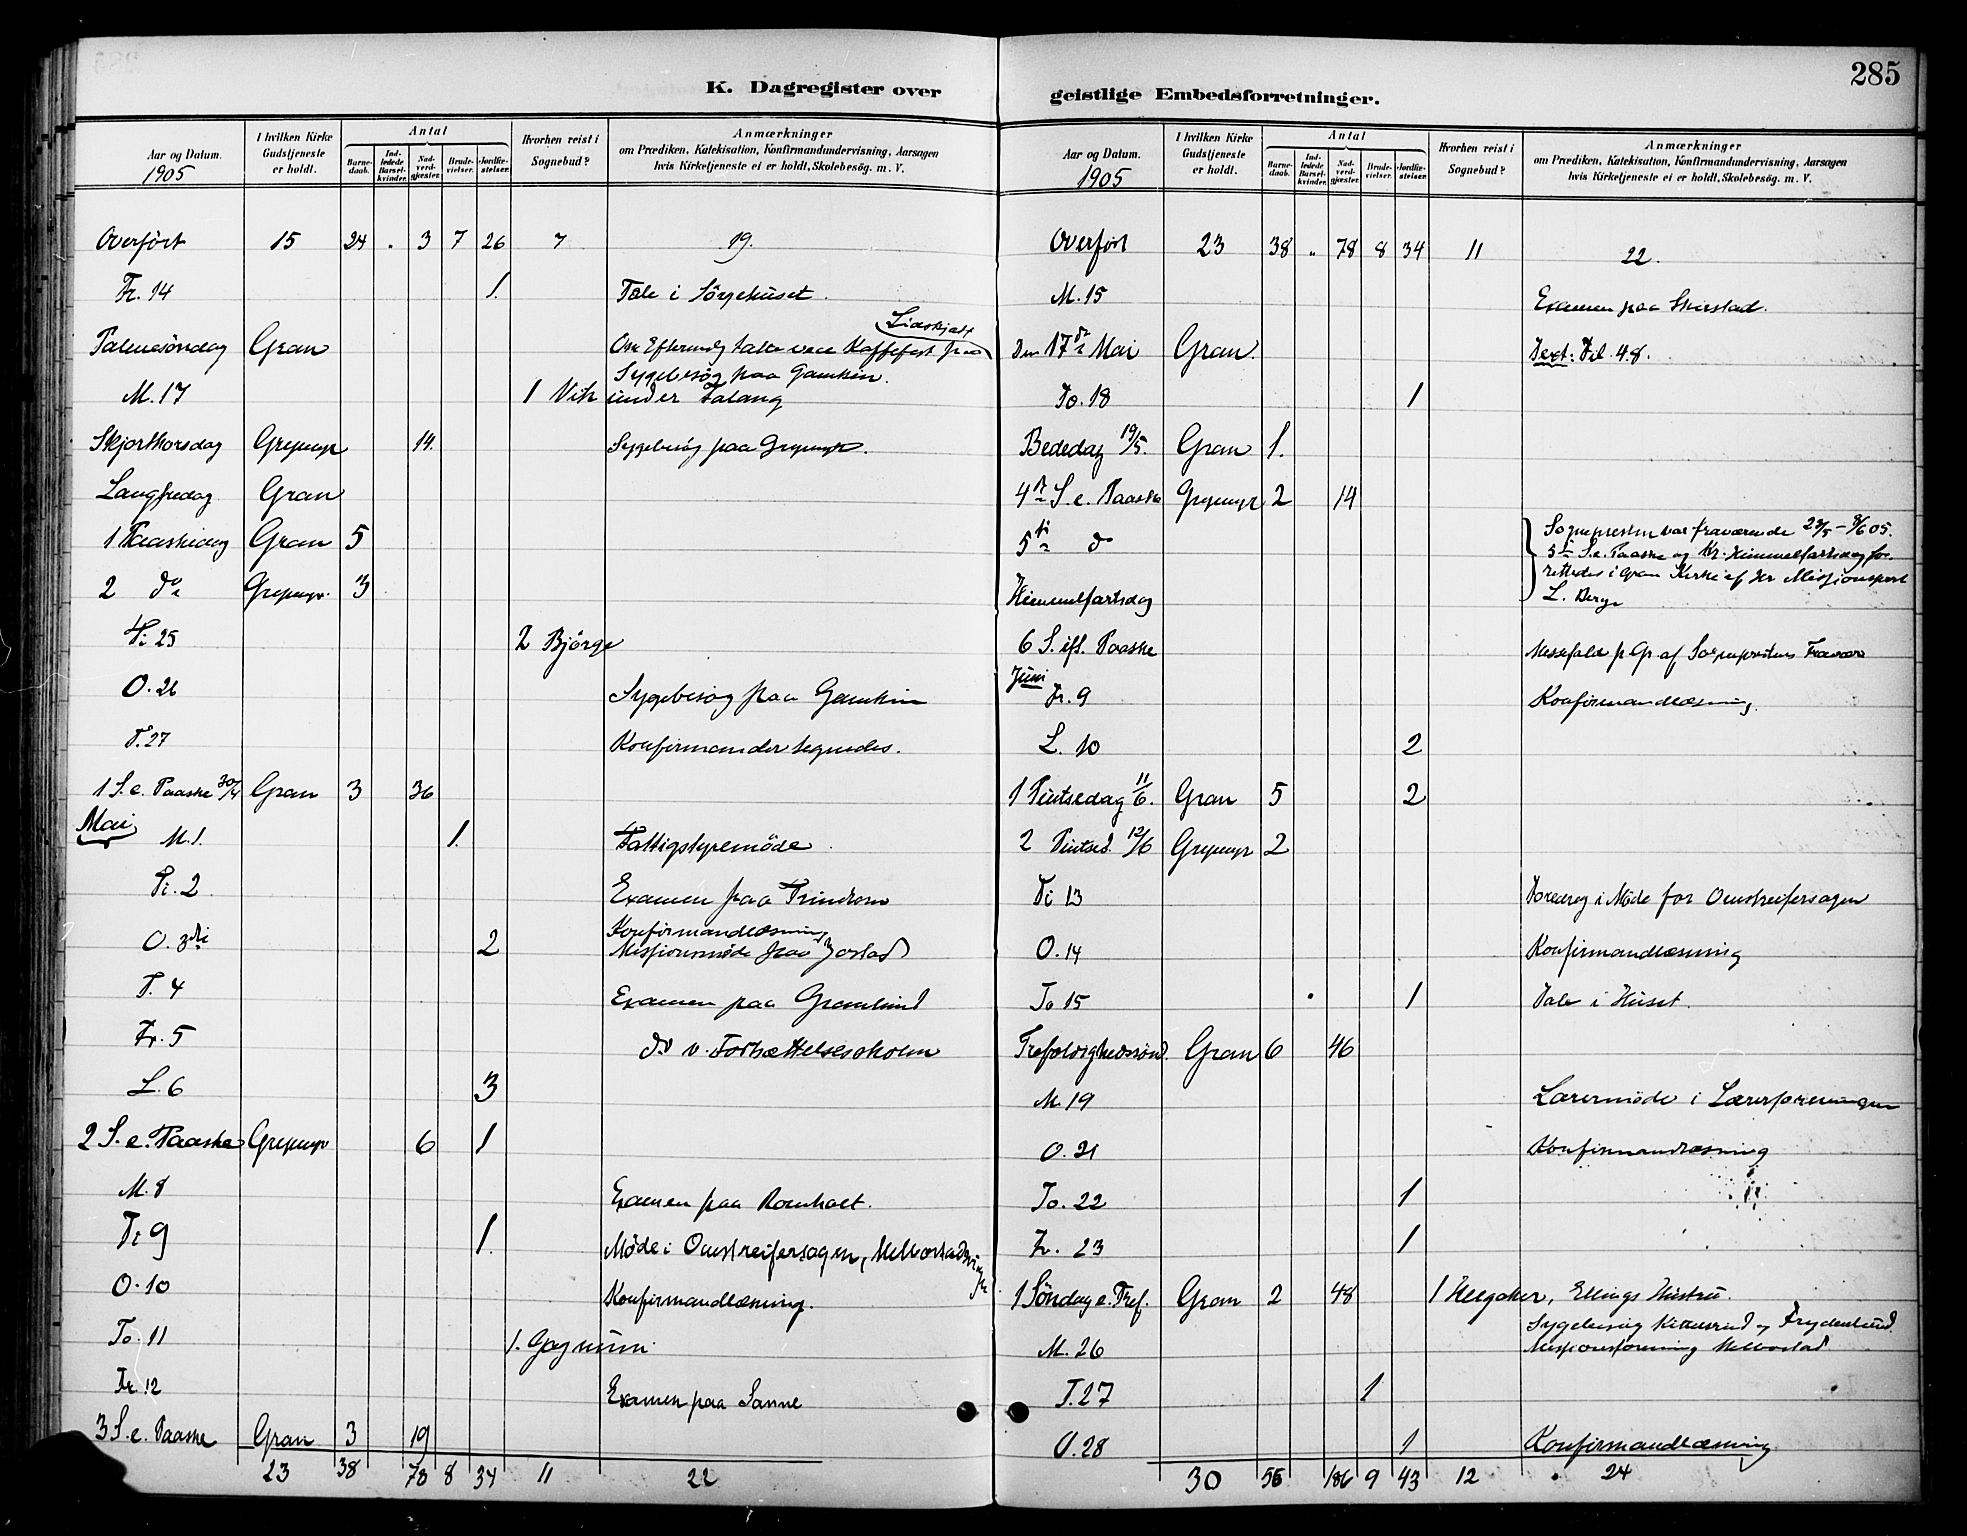 285
K. Dagregister over geistlige Embedsforretninger.
Aar og Datum. 1905
I hvilken Kirke Gudstjeneste er holdt.
Antal
Barne-daab.
Ind-ledede Barsel-kvinder.
Nad-verd-gjæster.
Brude-vielser.
Jordfæ-stelser.
Hvorhen reist i Sognebud?
Anmærkninger
om Prædiken, Katekisation, Konfirmandundervisning, Aarsagen
hvis Kirketjeneste ei er holdt, Skolebesøg. m. V.
Overført 15 24 . 3 7 26 7 19.
Fr. 14 1. Tale i Sörgehuset.
Palmesöndag Gran Om Efterm talte ved Kaffefest paa
Sygebesög paa Gamkin.
M. 17 1 Vik under Falang
Skjærthorsdag Grymyr 14. Sygebesög paa Grymyr.
Langfredag Gran
1 Paaskedag Gran 5
2 do Grymyr. 3
Ti 25 2 Björge
O. 26 Sygebesög paa Gamkin
T. 27 Konfirmander tegnedes.
1 S. e. Paaske 30/4 Gran 3 36
Mai
M. 1. 1. Fattigstyremöde
Ti. 2 Examen paa Trindrom
O. 3die 2 Konfirmandlæsning
Missionsmöde paa Jorstad
T. 4 Examen paa Granlund
Fr. 5 do v. Fortsættelsesskolen
L. 6 3
2 S. e. Paaske Grymyr 6 1
M. 8 Examen paa Romholt.
Ti 9 1. Möde i Omstreifersagen, Helbostadsvingen
O. 10 Konfirmandlæsning.
To. 11 1. Gagnum.
Fr. 12 Examen paa Sanne
3 S. e. Paaske Gran 3 19
23 38 78 8 34 11 22
Aar og Datum. 1905
I hvilken Kirke Gudstjeneste er holdt.
Antal
Barne-daab.
Ind-ledede Barsel-kvinder.
Nad-verd-gjæster.
Brude-vielser.
Jordfæ-stelser.
Hvorhen reist i Sognebud?
Anmærkninger
om Prædiken, Katekisation, Konfirmandundervisning, Aarsagen
hvis Kirketjeneste ei er holdt, Skolebesøg. m. V.
Overført 23 38 „ 78 8 34 11 22.
M. 15 Examen paa Skirstad.
Den 17de Mai Gran Text: 4.8.
To. 18 1
Bededag 19/5. Gran 1.
4de S. e. Paaske Grymyr 2 14
5te do Sognepresten var fraværende 23/5 – 8/6 05.
5te S. e. Paaske og Kr. Himmelfartsdag for-
rettedes i Gran Kirke af Hr Missionsprest
Himmelfartsdag L. Berge
6 S. eft. Paaske Messefald p. Gr. af Sogneprestens Fravær
Juni
Fr. 9 Konfirmandlæsning.
L. 10 2
1 Pintsedag 11/6. Gran 5 2
2 Pintsed. 12/6 Grymyr 2
Ti 13 Foredrag i Möde for Omstreifersagen
O. 14 Konfirmandlæsning
To 15 1 Tale i Huset.
Trefoldighedssönd. Gran 6 46
M. 19 Lærermöde i Lærerforeningen
O. 21 Konfirmandlæsning
To. 22 1
Fr. 23 1
1 Söndag e. Tref. Gran 2 48 1 Helgaker, Ellings Hustru.
Sygebesög og Frydenlund.
M. 26 Missionsforening Helbostad
T. 27 1
O. 28 1 Konfirmandlæsning
30 56 186 9 43 12 24